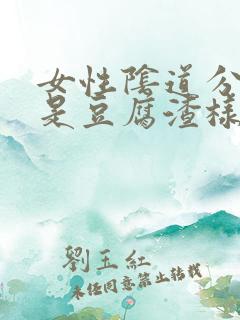 女性陰道分
是豆腐渣樣
劉玉紅
未經同意禁止轉載